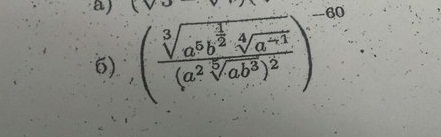 а)
б) $\left(\frac{\sqrt[3]{a^5 b^{\frac{1}{2}} \sqrt[4]{a^{-1}}}}{(a^2 \sqrt[5]{ab^3})^2}\right)^{-60}$